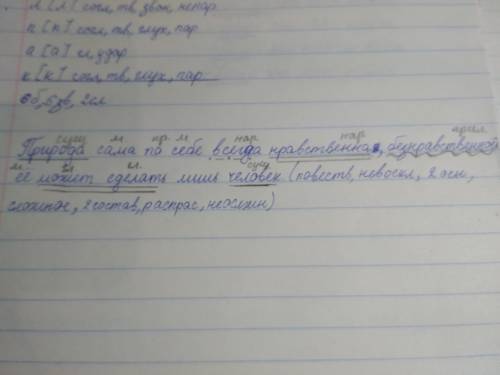 л [л] согл, тв, звон, непар
п [п] согл, тв, глух, пар
а [а] гл, удар
к [к] согл, тв, глух, пар
6б, 5зв, 2сл
сущ м. пр. м нар нар прил.
Природа сама по себе всегда нравственна, безнравственной
м. гл. гл. сущ
её может сделать лишь человек (повеств, невоскл, 2 осн,
сложное, 2 состав, распрас, неослжн)